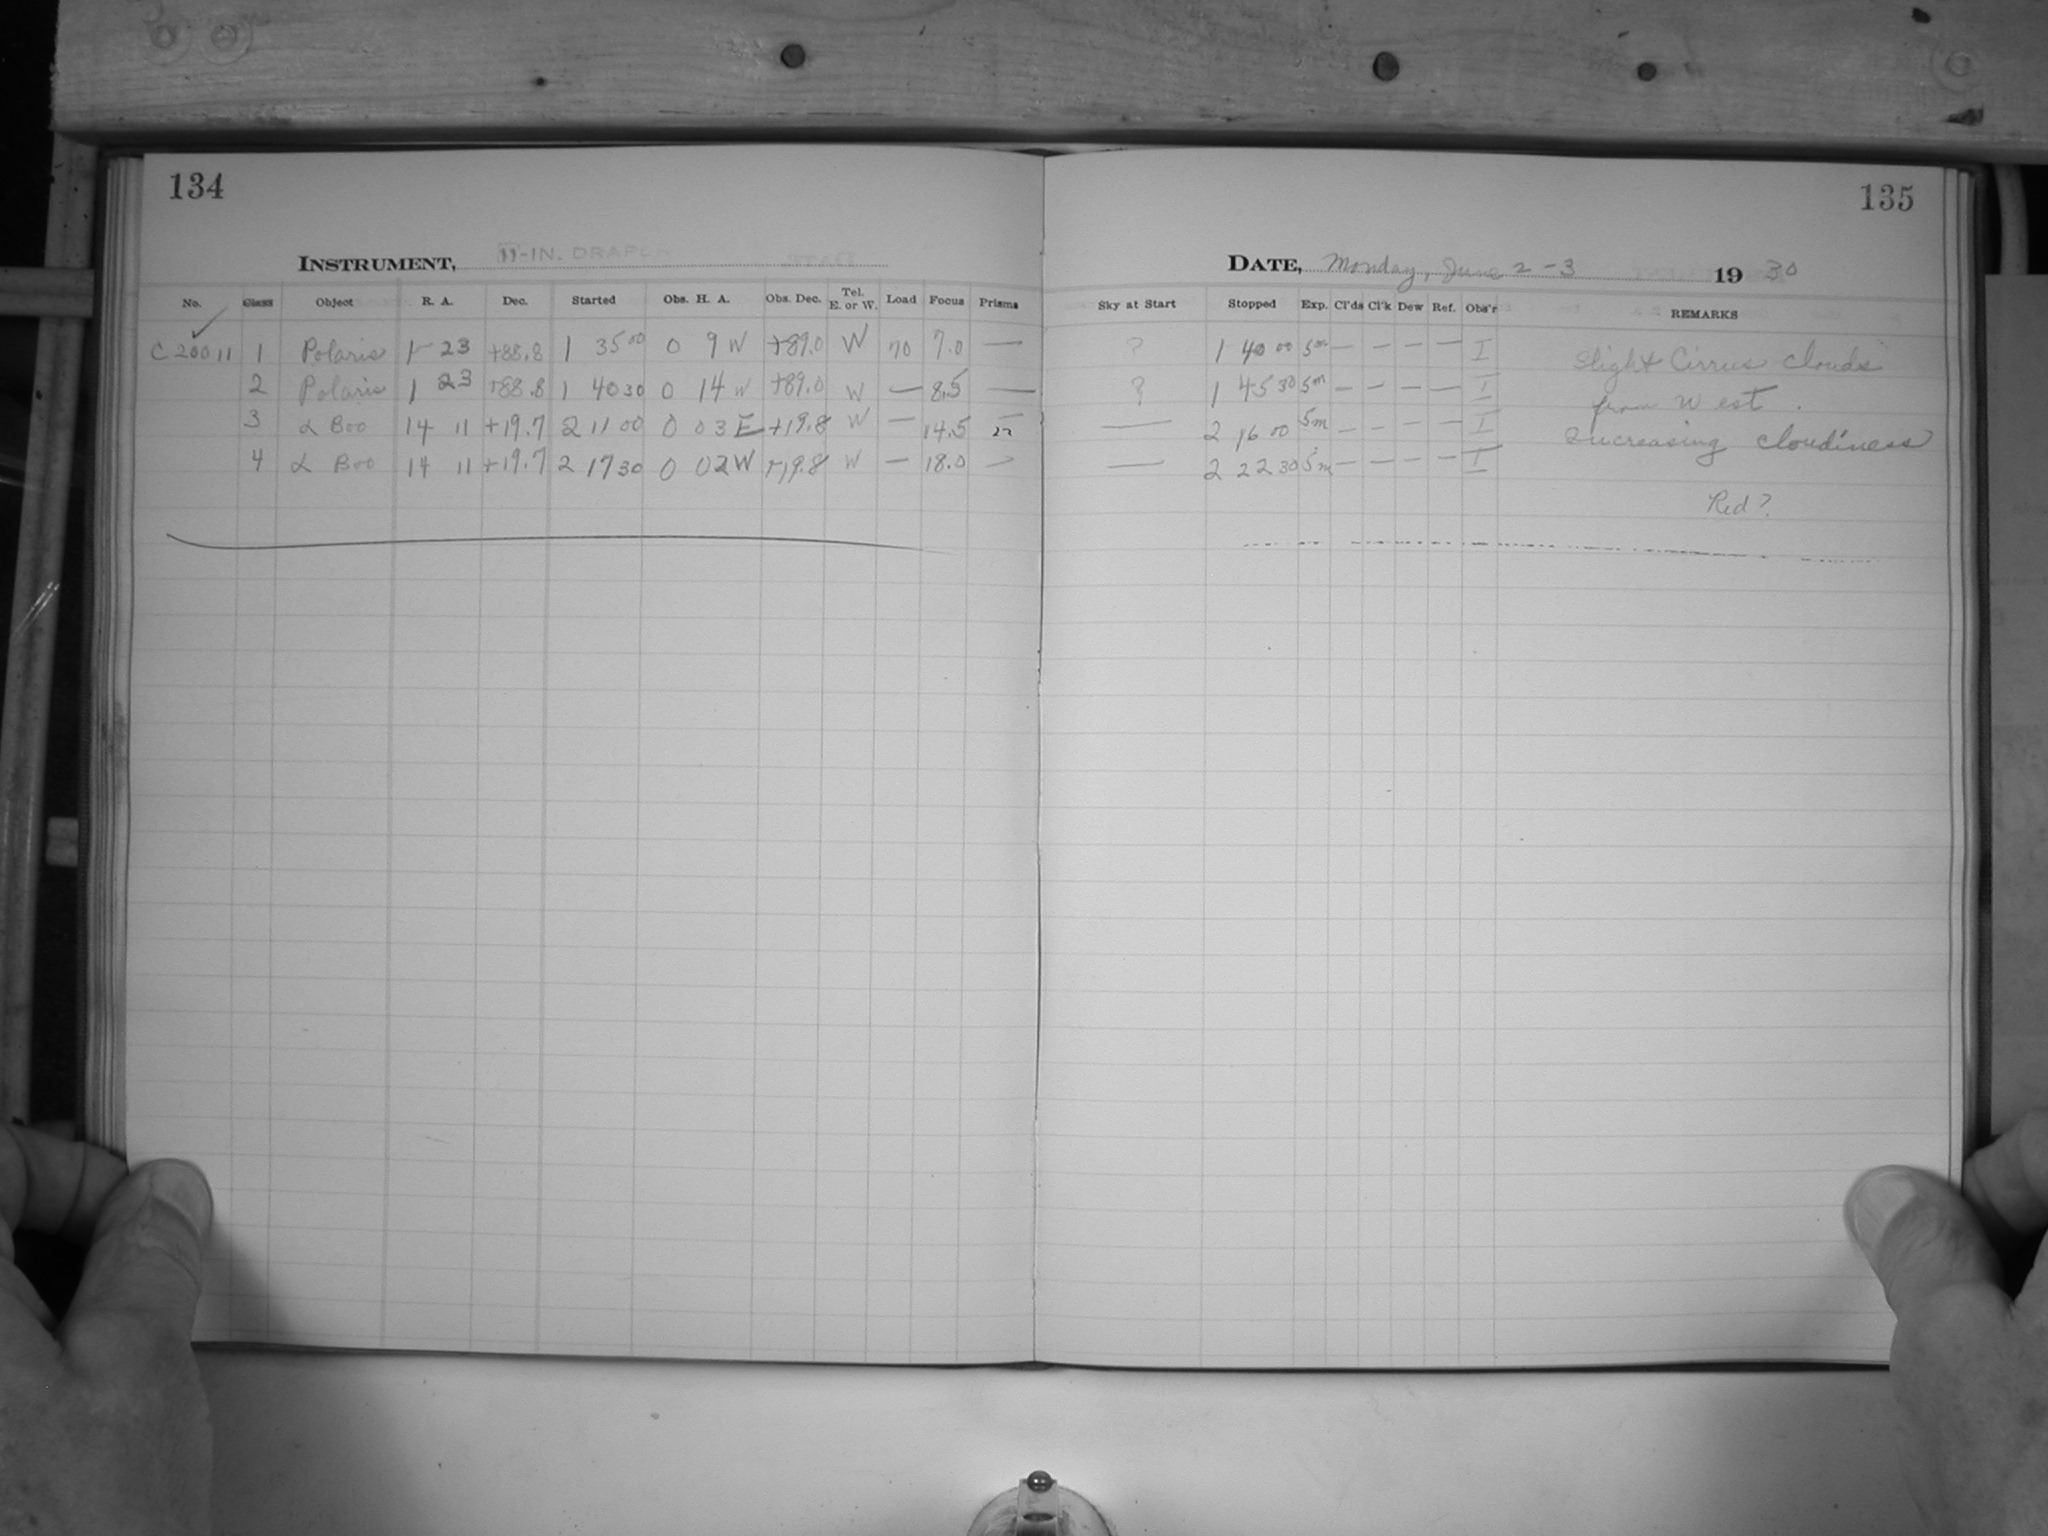 134
INSTRUMENT, 11-IN. DRAPER
No. Class Object R. A. Dec. Started Obs. H. A. Obs. Dec. Tel. E. or W. Load Focus Prisms
C 20011 1 Polaris 1 23 +88.8 1 35 00 0 9 W +89.0 W 70 7.0 —
2 Polaris 1 23 +88.8 1 40 30 0 14 W +89.0 W — 8.5 —
3 α Boo 14 11 +19.7 2 11 00 0 03 E +19.8 W — 14.5 —
4 α Boo 14 11 +19.7 2 17 30 0 02 W +19.8 W — 18.0 —
135
DATE, Monday, June 2-3 1930
Sky at Start Stopped Exp. Cl'ds Cl'k Dew Ref. Obs'r REMARKS
? 1 40 00 5m — — — — I Slight Cirrus clouds
? 1 45 30 5m — — — — I from West.
— 2 16 00 5m — — — — I Increasing cloudiness
— 2 22 30 5m — — — — I
Red?